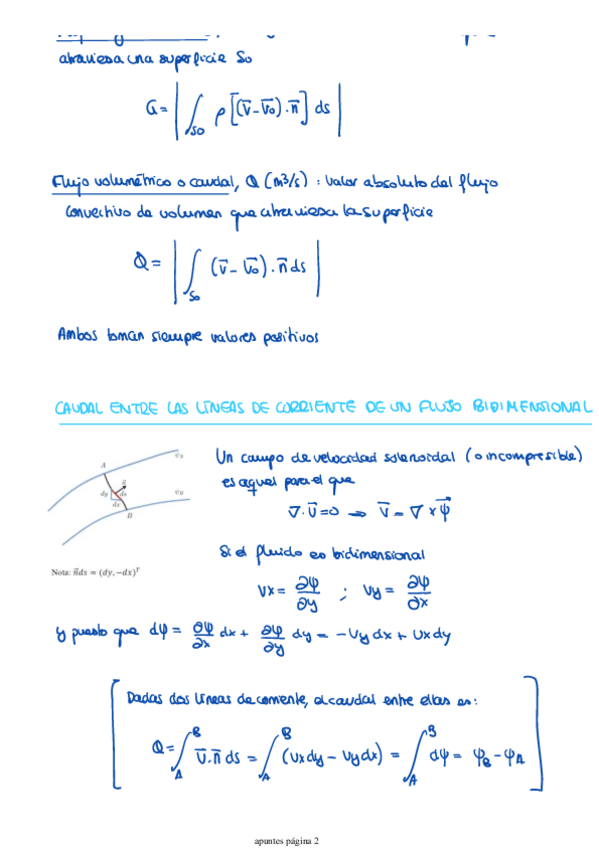 atraviesa una superficie So
G = | ∫_So ρ[(v̄-v̄o).n̄] ds |
Flujo volumétrico o caudal, Q (m³/s) : valor absoluto del flujo
convectivo de volumen que atraviesa la superficie
Q = | ∫_So (v̄ - v̄o).n̄ ds |
Ambos toman siempre valores positivos
CAUDAL ENTRE LAS LÍNEAS DE CORRIENTE DE UN FLUJO BIDIMENSIONAL
A
ψ_A
n̄
dy
ds
dx
ψ_B
B
Nota: n̄ds = (dy, −dx)ᵀ
Un campo de velocidad solenoidal (o incompresible)
es aquel para el que
∇.v̄=0 ⇒ v̄ = ∇×ψ⃗
Si el fluido es bidimensional
vx = ∂ψ/∂y ; vy = ∂ψ/∂x
y puesto que dψ = ∂ψ/∂x dx + ∂ψ/∂y dy = -vy dx + vx dy
Dadas dos líneas de corriente, el caudal entre ellas es:
Q = ∫_A^B v̄.n̄ ds = ∫_A^B (vx dy - vy dx) = ∫_A^B dψ = ψ_B - ψ_A
apuntes página 2